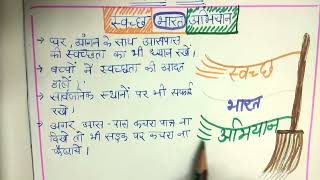 स्वच्छ भारत अभियान
→ घर, आंगन के साथ आसपास
की स्वच्छता का भी ध्यान रखें।
→ बच्चों में स्वच्छता की आदत
डालें।
→ सार्वजनिक स्थानों पर भी सफाई
रखें।
→ अगर आस-पास कचरा पात्र ना
दिखे तो भी सड़क पर कचरा ना
फैलाये।
स्वच्छ
भारत
अभियान